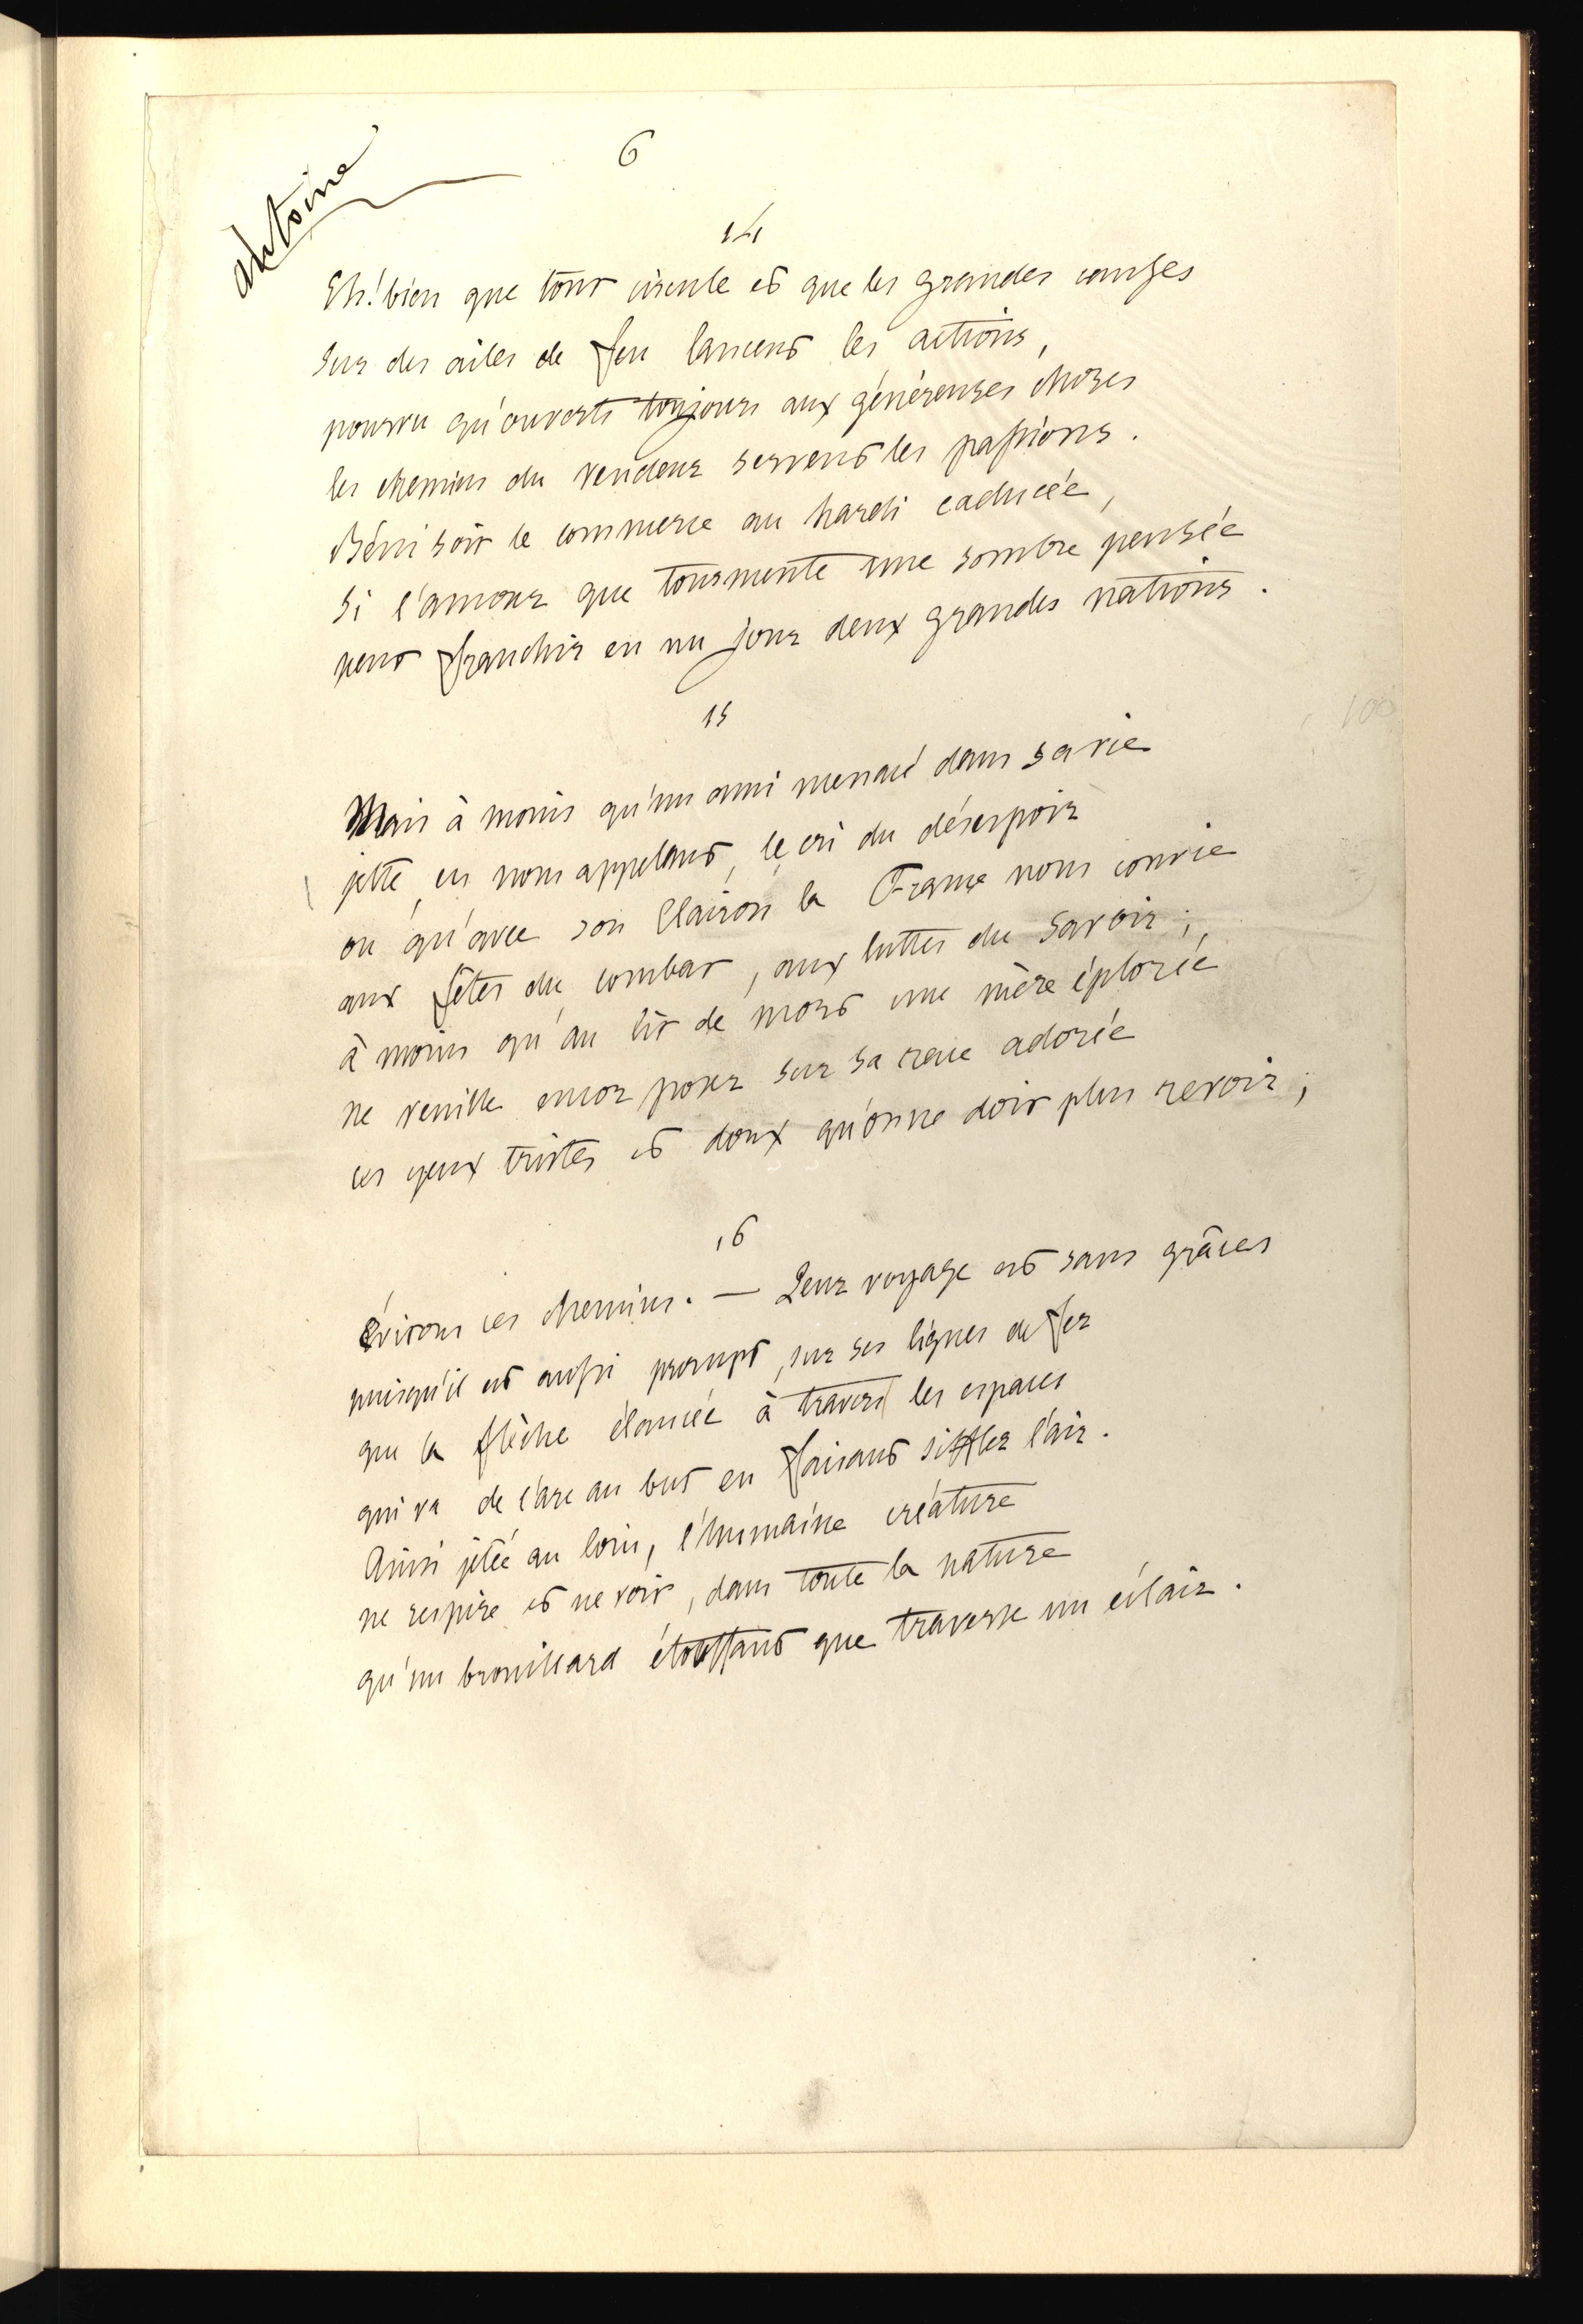 Antoine
6
14
Eh! bien que tout circule et que les grandes causes
sur des ailes de feu lancent les actions,
pourvu qu'ouverts toujours aux généreuses choses
les chemins du vendeur servent les passions.
Béni soit le commerce au hardi caducée,
si l'amour que tourmente une sombre pensée
peut franchir en un jour deux grandes nations.
15
Mais à moins qu'un ami menacé dans sa vie
jette, en nous appelant, le cri du désespoir
ou qu'avec son clairon la France nous convie
aux fêtes du combat, aux luttes du savoir;
à moins qu'au lit de mort une mère éplorée
ne veuille encor poser sur sa race adorée
ces yeux tristes et doux qu'on ne doit plus revoir;
16
Évitons ces chemins. — Leur voyage est sans grâces
puisqu'il est aussi prompt, sur ses lignes de fer
que la flèche élancée à travers les espaces
qui va de l'arc au but en faisant siffler l'air.
Ainsi jetée au loin, l'humaine créature
ne respire et ne voit, dans toute la nature
qu'un brouillard étouffant que traverse un éclair.
100